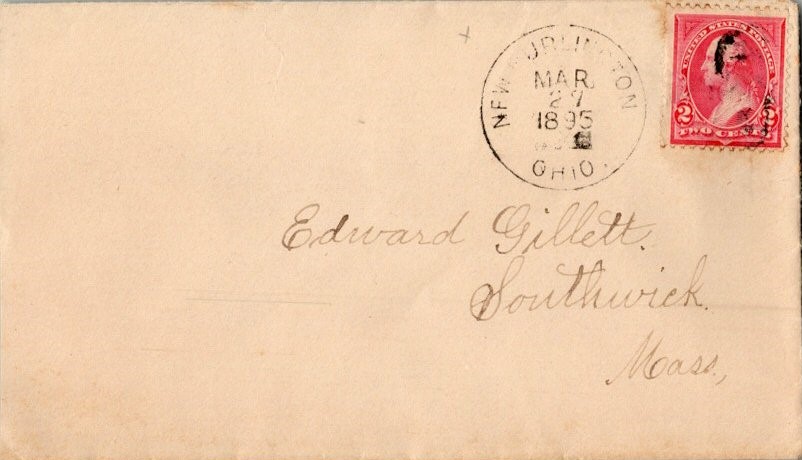 NEW BURLINGTON
MAR.
27
1895
OHIO.
UNITED STATES POSTAGE
2 2
TWO CENTS
Edward Gillett.
Southwick.
Mass.,